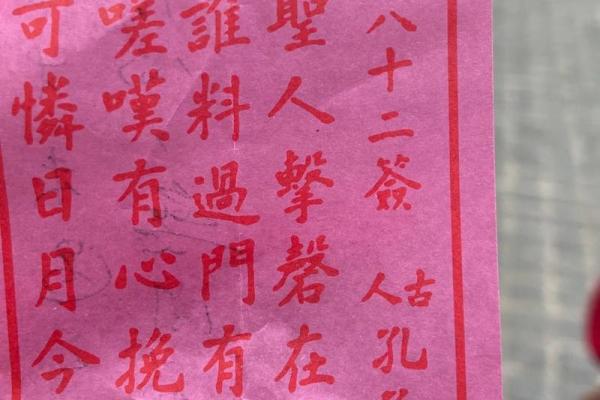 八十二簽 古人 孔
聖人擊磬在
誰料過門有
嗟嘆有心挽
可憐日月今